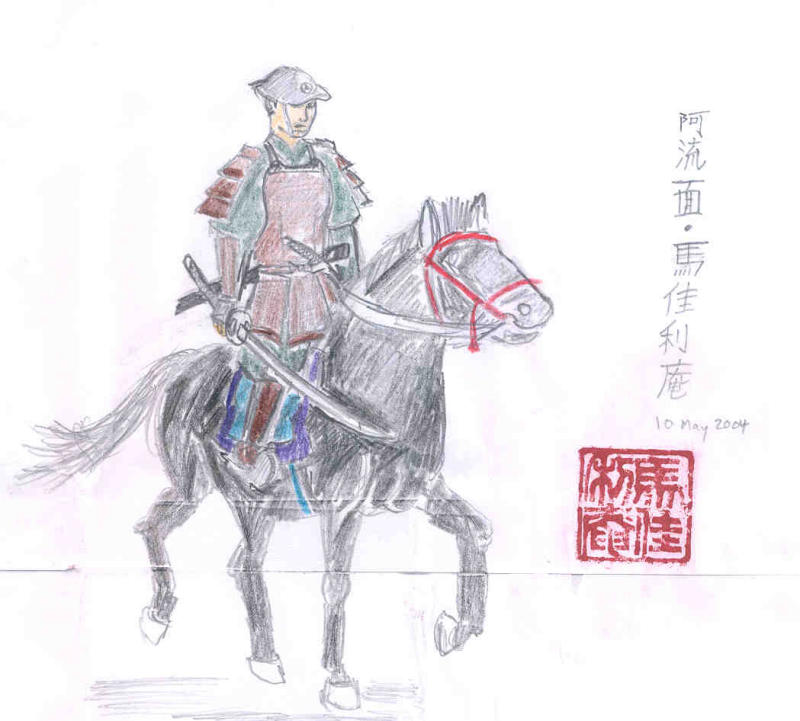 阿流面・馬佳利庵
10 May 2004
馬佳
利庵